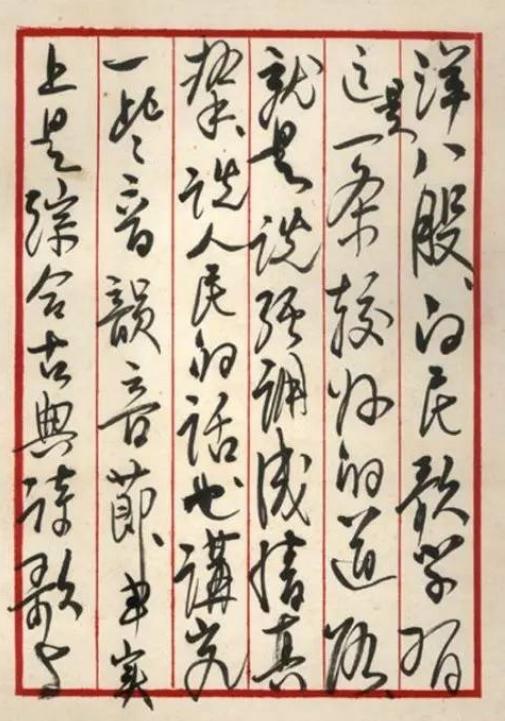 洋八股、向民歌学习
这是一条较好的道路、
就是说强调感情真
挚、说人民的话也講究
一些音韻音節、事实
上是综合古典诗歌与